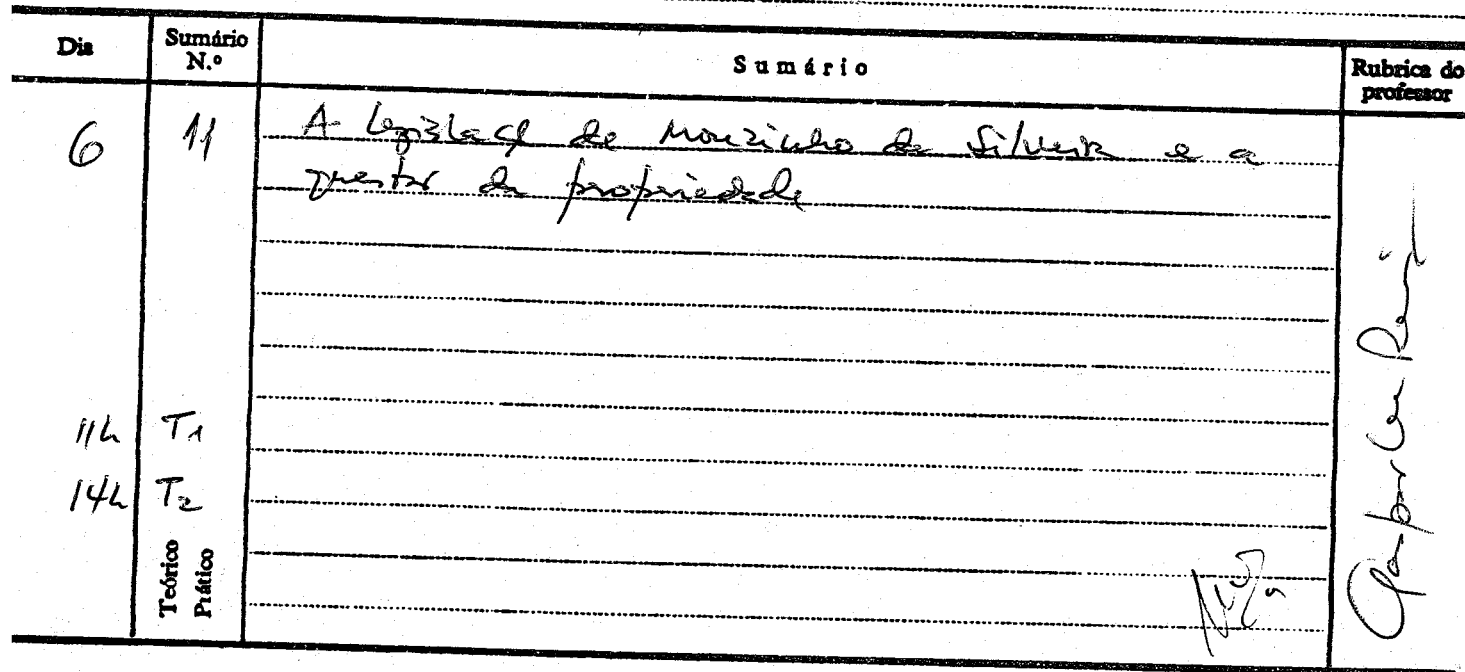 Dia
Sumário
N.º
Sumário
Rubrica do
professor
6
11
A legislaçã de Mouzinho da Silveira e a
questão da propriedade
11h T1
14h T2
Teórico
Prático